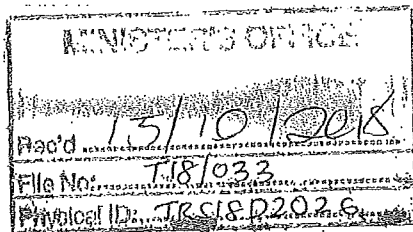 MINISTER'S OFFICE
Rec'd 15/10/2018
File No: T18/033
Physical ID: TRC18D2026